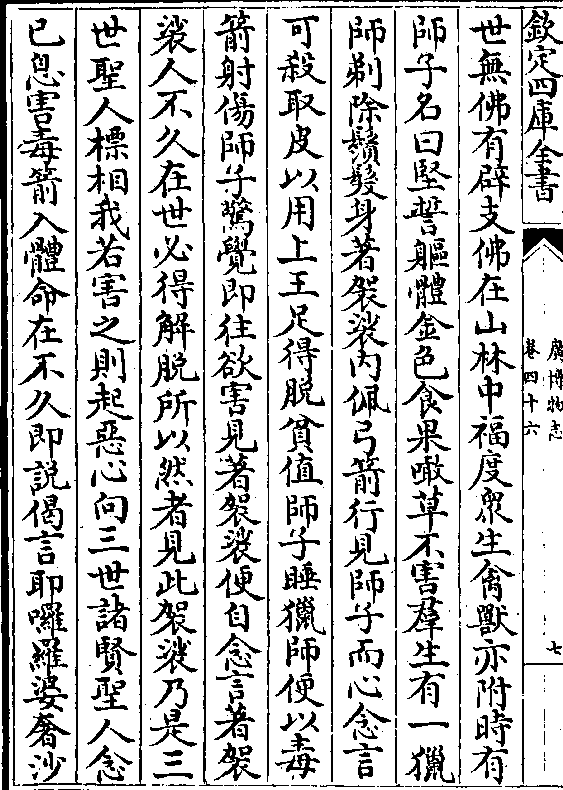 欽定四庫全書
廣博物志
卷四十六
七
世無佛有辟支佛在山林中福度衆生禽獸亦附時有
師子名曰堅誓軀體金色食果噉草不害羣生有一獵
師剃除鬚髮身著袈裟内佩弓箭行見師子而心念言
可殺取皮以用上王足得脱貧值師子睡獵師便以毒
箭射傷師子驚覺即往欲害見著袈裟便自念言著袈
裟人不久在世必得解脱所以然者見此袈裟乃是三
世聖人標相我若害之則起惡心向三世諸賢聖人念
已息害毒箭入體命在不久即説偈言耶囉羅婆奢沙